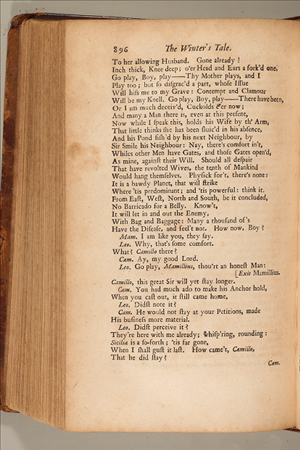 896 The Winter's Tale.
To her allowing Husband. Gone already!
Inch thick, Knee deep; o'er Head and Ears a fork'd one.
Go play, Boy, play——Thy Mother plays, and I
Play too; but so disgrac'd a part, whose Issue
Will hiss me to my Grave: Contempt and Clamour
Will be my Knell. Go play, Boy, play——There have been,
Or I am much deceiv'd, Cuckolds e'er now;
And many a Man there is, even at this present,
Now while I speak this, holds his Wife by th' Arm,
That little thinks she has been sluic'd in his absence,
And his Pond fish'd by his next Neighbour, by
Sir Smile his Neighbour: Nay, there's comfort in't,
Whiles other Men have Gates, and those Gates open'd,
As mine, against their Will. Should all despair
That have revolted Wives, the tenth of Mankind
Would hang themselves. Physick for't, there's none:
It is a bawdy Planet, that will strike
Where 'tis predominant; and 'tis powerful: think it.
From East, West, North and South, be it concluded,
No Barricado for a Belly. Know't,
It will let in and out the Enemy,
With Bag and Baggage: Many a thousand of's
Have the Disease, and feel't not. How now, Boy?
Mam. I am like you, they say.
Leo. Why, that's some comfort.
What? Camillo there?
Cam. Ay, my good Lord.
Leo. Go play, Mamillius, thou'rt an honest Man:
[Exit Mamillius.
Camillo, this great Sir will yet stay longer.
Cam. You had much ado to make his Anchor hold,
When you cast out, it still came home.
Leo. Didst note it?
Cam. He would not stay at your Petitions, made
His business more material.
Leo. Didst perceive it?
They're here with me already; whisp'ring, rounding:
Sicilia is a so-forth; 'tis far gone,
When I shall gust it last. How came't, Camillo,
That he did stay?
Cam.